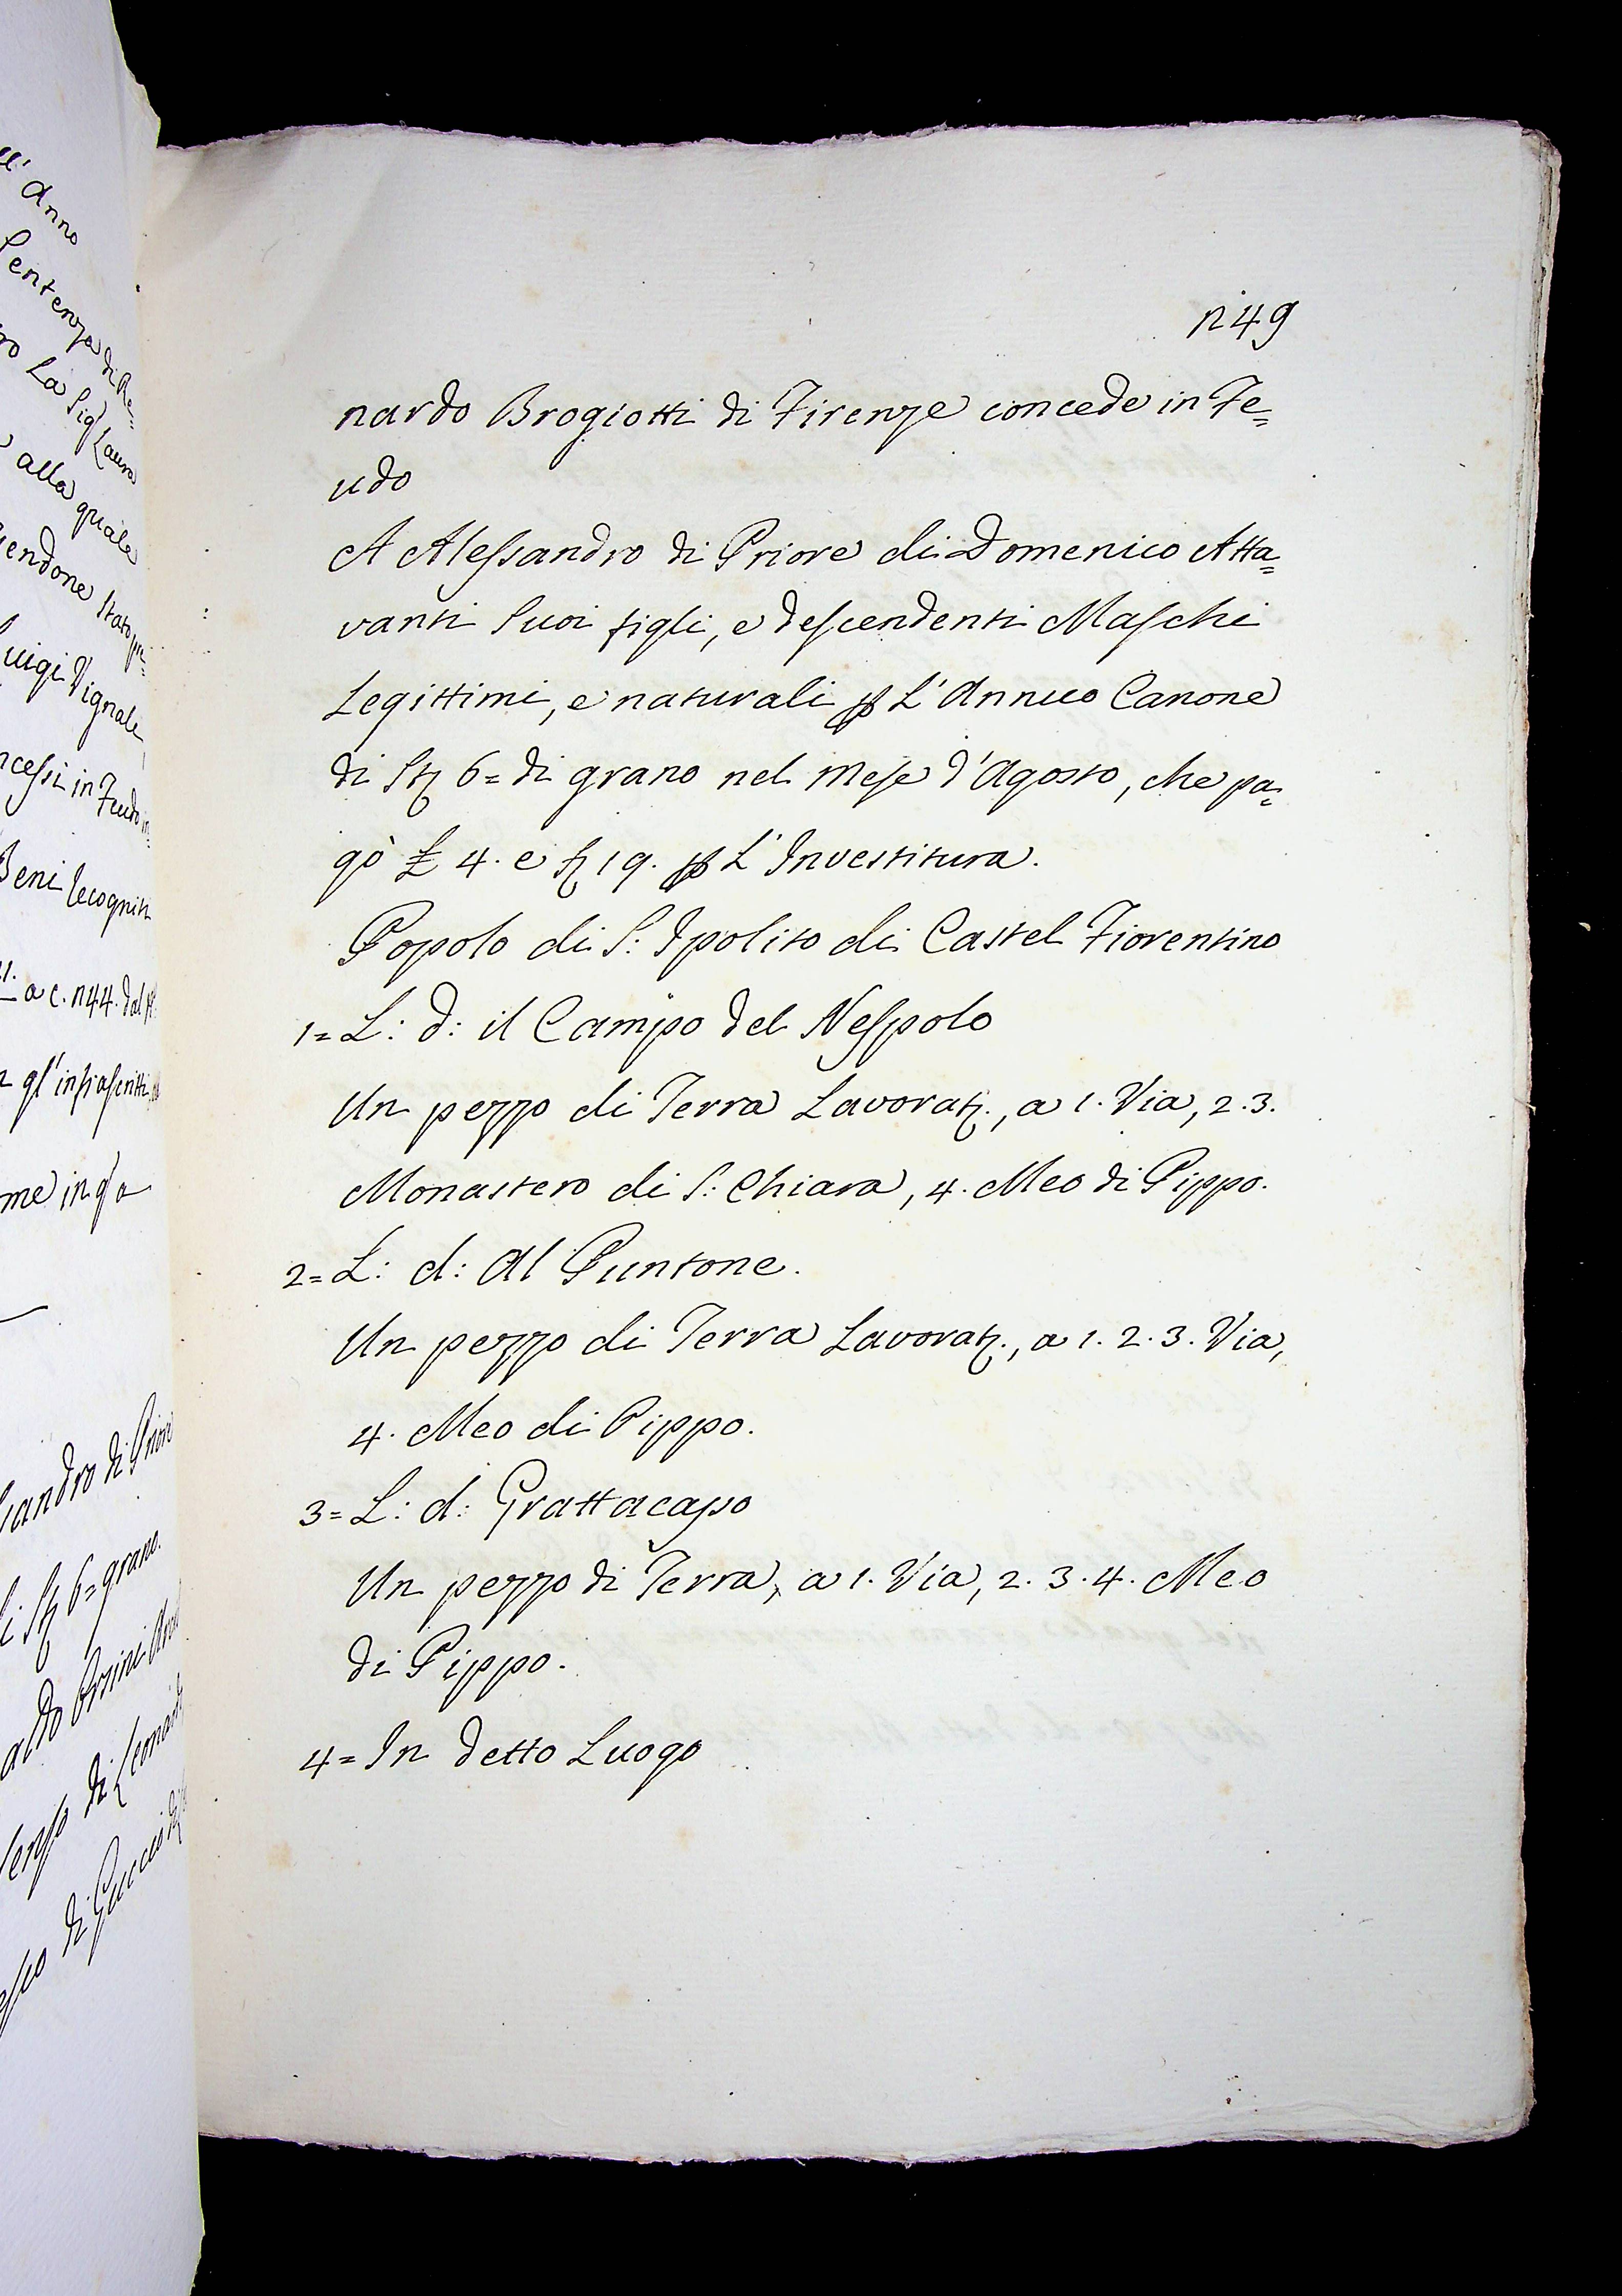 ll' Anno
Sentenza di Re=
La Sig. Laura
alla quale
endone stato
uigi Vignale
ncessi in Feudo
Beni Recogniti
a c. n44. dal
gl' infrascritti
me in q a
sandro di Priore
di St 6= grano.
aldo Orsini
Renzo di Leonardo
di Guccio di
n49
nardo Brogiotti di Firenze concede in Fe=
udo
A Alessandro di Priore di Domenico Atta=
vanti Suoi figli, e descendenti Maschi
Legittimi, e naturali p L' Annuo Canone
di St 6= di grano nel Mese d' Agosto, che pa=
gò £ 4. e ß 19. p L' Investitura.
Popolo di S: Ipolito di Castel Fiorentino
1= L: d: il Campo del Nespolo
Un pezzo di Terra Lavorat., a 1. Via, 2. 3.
Monastero di S: Chiara, 4. Meo di Pippo.
2= L: d: Al Puntone.
Un pezzo di Terra Lavorat., a 1. 2. 3. Via,
4. Meo di Pippo.
3= L: d: Grattacapo
Un pezzo di Terra, a 1. Via, 2. 3. 4. Meo
di Pippo.
4= In detto Luogo